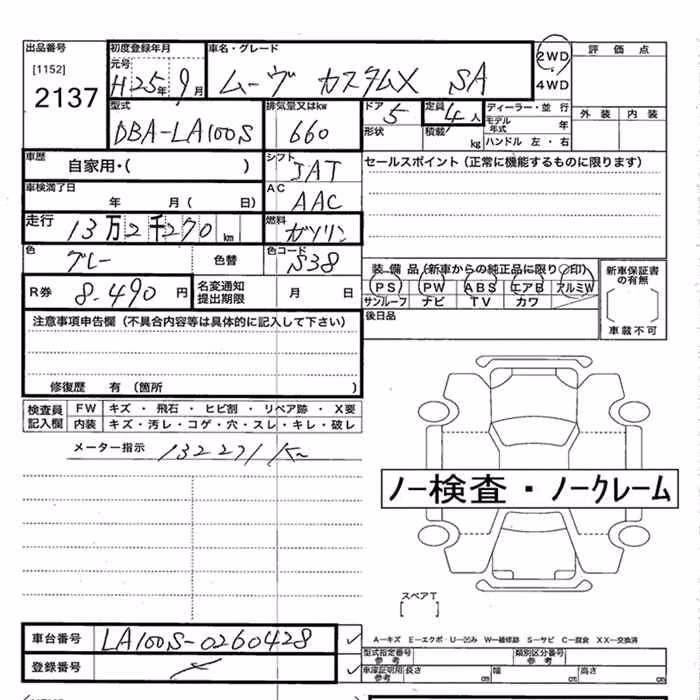 出品番号 初度登録年月 車名・グレード 2WD 評価点
[1152] 元号 H25年9月 ムーヴ カスタムX SA 4WD 外装 内装
2137 型式 排気量又はkw ドア 5 定員 4人 ディーラー・並行
DBA-LA100S 660 形状 積載 kg モデル年式 年
ハンドル 左・右
車歴 自家用・( ) シフト IAT セールスポイント(正常に機能するものに限ります)
車検満了日 年 月( 日) AC AAC
走行 13万2千270km 燃料 ガソリン
色 グレー 色替 色コード S38
装備品(新車からの純正品に限り○印) 新車保証書の有無
R券 8.490円 名変通知提出期限 月 日 PS PW ABS エアB アルミW
サンルーフ ナビ TV カワ
注意事項申告欄(不具合内容等は具体的に記入して下さい) 後日品 車載不可
修復歴 有(箇所 )
検査員記入欄 FW キズ・飛石・ヒビ割・リペア跡・X要
内装 キズ・汚レ・コゲ・穴・スレ・キレ・破レ
メーター指示 132271K
ノー検査・ノークレーム
スペアT
[ ]
車台番号 LA100S-0260428 A―キズ E―エクボ U―凹み W―補修跡 S―サビ C―腐食 XX―交換済
登録番号 型式指定番号 参考 類別区分番号 参考
車庫証明用 参考 長さ cm 幅 cm 高さ cm